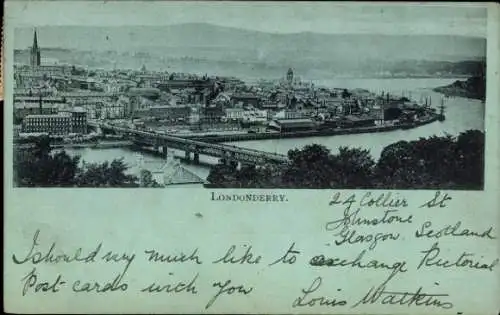 LONDONDERRY.
24 Collier St
Johnstone
Glasgow. Scotland.
I should very much like to exchange Pictorial
Post cards with you
Louis Watkins